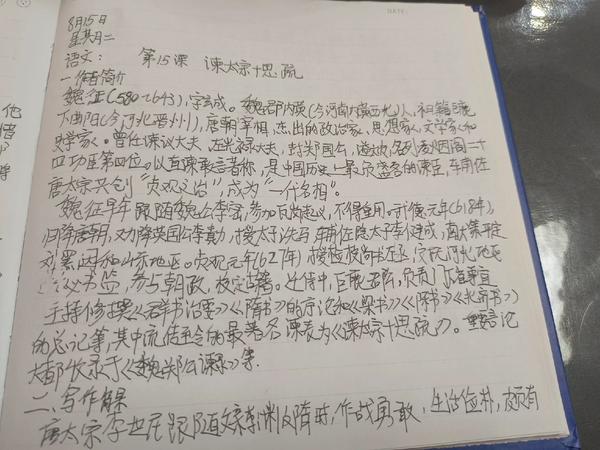 8月15日
星期二
语文： 第15课 谏太宗十思疏
一、作者简介
魏征(580~643),字玄成。魏郡内黄(今河南内黄西北)人,祖籍
下曲阳(今河北晋州),唐朝宰相,杰出的政治家、思想家、文学家和
史学家。曾任谏议大夫、左光禄大夫,封郑国公,谥文贞,名列凌烟阁二十
四功臣第四位。以直谏敢言著称,是中国历史上最负盛名的谏臣,辅佐
唐太宗共创“贞观之治”,成为“一代名相”。
魏征早年跟随魏公李密,参加瓦岗起义,不得重用。武德元年(618年),
归降唐朝,又劝降英国公李勣,授太子洗马,辅佐隐太子李建成,献策平定
刘黑闼和山东地区。贞观元年(627年)授检校尚书左丞,安抚河北地区
秘书监,参与朝政,校定古籍。迁侍中,巨鹿 负责门下省事宜
主持修撰《群书治要》《隋书》的序论和《梁书》《陈书》《北齐书》
的总论等,其中流传至今的最著名谏表为《谏太宗十思疏》。 言论
大都收录于《魏郑公谏录》等.
二、写作背景
唐太宗李世民跟随 李渊反隋时,作战勇敢,生活俭朴,颇有